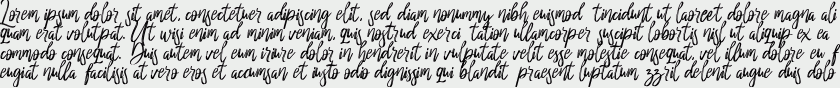 Lorem ipsum dolor sit amet, consectetuer adipiscing elit, sed diam nonummy nibh euismod tincidunt ut laoreet dolore magna ali
quam erat volutpat. Ut wisi enim ad minim veniam, quis nostrud exerci tation ullamcorper suscipit lobortis nisl ut aliquip ex ea
commodo consequat. Duis autem vel eum iriure dolor in hendrerit in vulputate velit esse molestie consequat, vel illum dolore eu f
eugiat nulla facilisis at vero eros et accumsan et iusto odio dignissim qui blandit praesent luptatum zzril delenit augue duis dolo